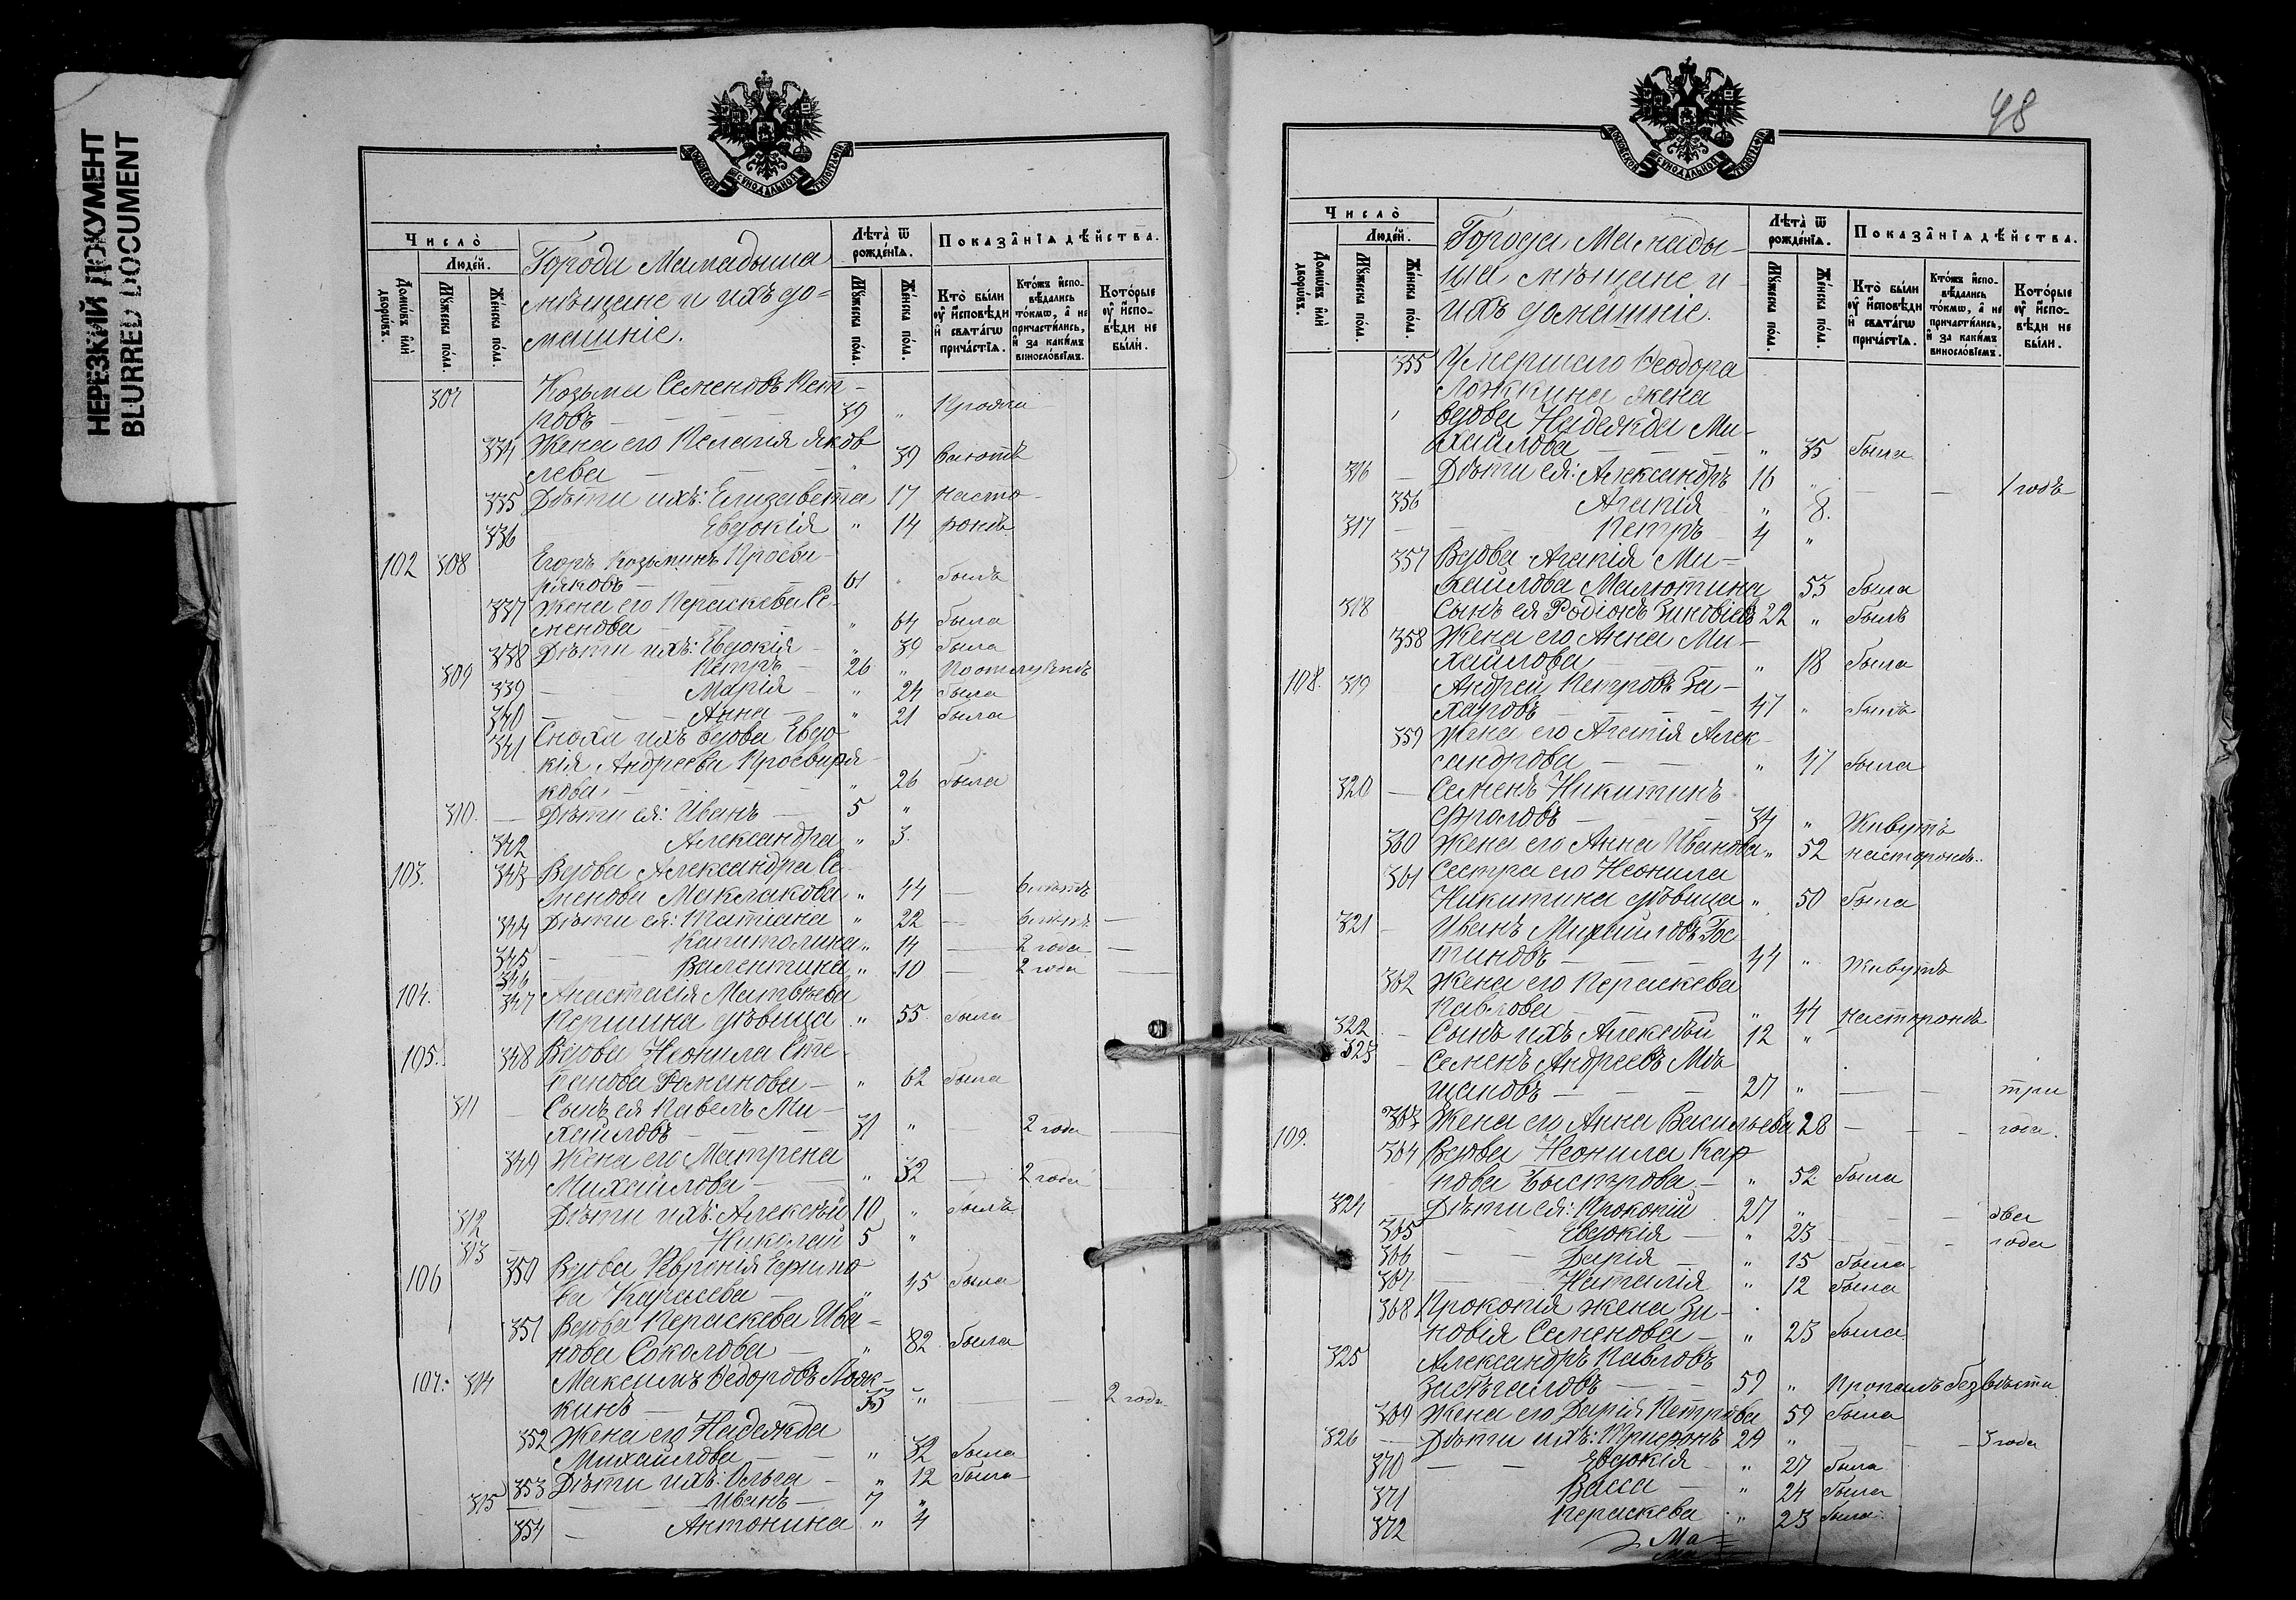 НЕРЕЗКИЙ ДОКУМЕНТ
BLURRED DOCUMENT
МОСКОВСКОЙ СѴНОДАЛЬНОЙ ТИПОГРАФІИ
Число̀
Людей.
Домѡвъ и҆лѝ дворѡвъ.
Мꙋжеска пола.
Женска пола.
Города Мамадыша
мѣщане и ихъ до=
машніе.
Лѣта̀ ѿ рожденїѧ.
Мꙋжеска пола.
Женска пола.
Показанїѧ дѣйства.
Кто̀ были ᲂу҆ и҆сповѣди и҆ свѧтагѡ причастїѧ.
Кто́жъ и҆сповѣдались то́кмѡ, а҆ не причастились, и҆ за какимъ винословїемъ.
Которые ᲂу҆ и҆сповѣди не были.
307 Козьма Семеновъ Пет-
ровъ 39 „ Прожи
334 Жена его Пелагія Яков
лева „ 39 ваютъ
335 Дѣти ихъ: Елизавета 17 насто-
336 Евдокія „ 14 ронѣ
102 308 Егоръ Козьминъ Просви-
ряковъ 61 „ былъ
337 Жена его Параскева Се-
менова „ 64 была
338 Дѣти ихъ: Евдокія „ 39 была
309 Петръ 26 „
339 Марія „ 24 была
340 Анна „ 21 была
341 Сноха ихъ вдова Евдо-
кія Андреева Просвиря-
кова „ 26 была
310. Дѣти ея: Иванъ 5 „
342 Александра „ 3.
103. 343 Вдова Александра Се-
менова Маклакова „ 44
344 Дѣти ея: Татіана „ 22
345 Капитолина „ 14 2 года
346 Валентина „ 10 2 года
104. 347 Анастасія Матвѣева
Першина дѣвица „ 55 была
105. 348 Вдова Неонила Сте-
панова Романова „ 62 была
311 Сынъ ея Павелъ Ми-
хайловъ 31 „ 2 года
349 Жена его Матрена
Михайлова „ 32 2 года
312 Дѣти ихъ: Алексѣй 10 „ былъ
313 Николай 5 „
106 350 Вдова Февронія
ва Карасева „ 45 была
351 Вдова Параскева Ива-
нова Соколова „ 82 была
107. 314 Максимъ Ѳедоровъ Лож-
кинъ „ 2 года
352 Жена его Надежда
Михайлова „ 32 была
353 Дѣти ихъ: Ольга „ 12 была
315 Иванъ 7 „
354 Антонина „ 4
48
МОСКОВСКОЙ СѴНОДАЛЬНОЙ ТИПОГРАФІИ
Число̀
Людей.
Домѡвъ и҆лѝ дворѡвъ.
Мꙋжеска пола.
Женска пола.
Города Мамады-
ша мѣщане и
ихъ домашніе.
Лѣта̀ ѿ рожденїѧ.
Мꙋжеска пола.
Женска пола.
Показанїѧ дѣйства.
Кто̀ были ᲂу҆ и҆сповѣди и҆ свѧтагѡ причастїѧ.
Кто́жъ и҆сповѣдались то́кмѡ, а҆ не причастились, и҆ за какимъ винословїемъ.
Которые ᲂу҆ и҆сповѣди не были.
355 Умершаго Ѳеодора
Ложкина жена
вдова Надежда Ми-
хайлова „ 35 была
316 Дѣти ея: Александръ 16 „ 1 годъ
356 Агапія „ 8.
317 Петръ 4 „
357 Вдова Агапія Ми-
хайлова Малютина 53 была
318 Сынъ ея Родіонъ Зиновіевъ 22 „ былъ
358 Жена его Анна Ми-
хайлова „ 18 была
108. 319 Андрей Петровъ За-
харовъ 47 „ былъ
359 Жена его Агапія Алек-
сандрова „ 47 была
320 Семенъ Никитинъ
34 „ Живутъ
360 Жена его Анна Иванова „ 52 насторонѣ.
361 Сестра его Неонила
Никитина дѣвица „ 50 была
321 Иванъ Михайловъ Гос
тиновъ 44 „ Живутъ
362 Жена его Параскева
Павлова „ 44 насторонѣ
322 Сынъ ихъ Алексѣй 12 „
323 Семенъ Андреевъ Мѣ
щановъ 27 „ три
363 Жена его Анна Васильева 28 года.
109. 364 Вдова Неонила Кар
пова „ 52 была
324 Дѣти ея: Прокопій 27 „ два
365 Евдокія „ 23 года
366 Дарія „ 15 была
367 Наталія „ 12 была
368 Прокопія жена Зи-
новія Семенова „ 23 была
325 Александръ Павловъ
59 „ Пропалъ безъ вѣсти
369 Жена его Дарія Петрова 59 была
326 Дѣти ихъ: Трифонъ 24 „ 3 года
370 Евдокія „ 27 была
371 Васса „ 24 была
372 Параскева „ 23 была
Ма=